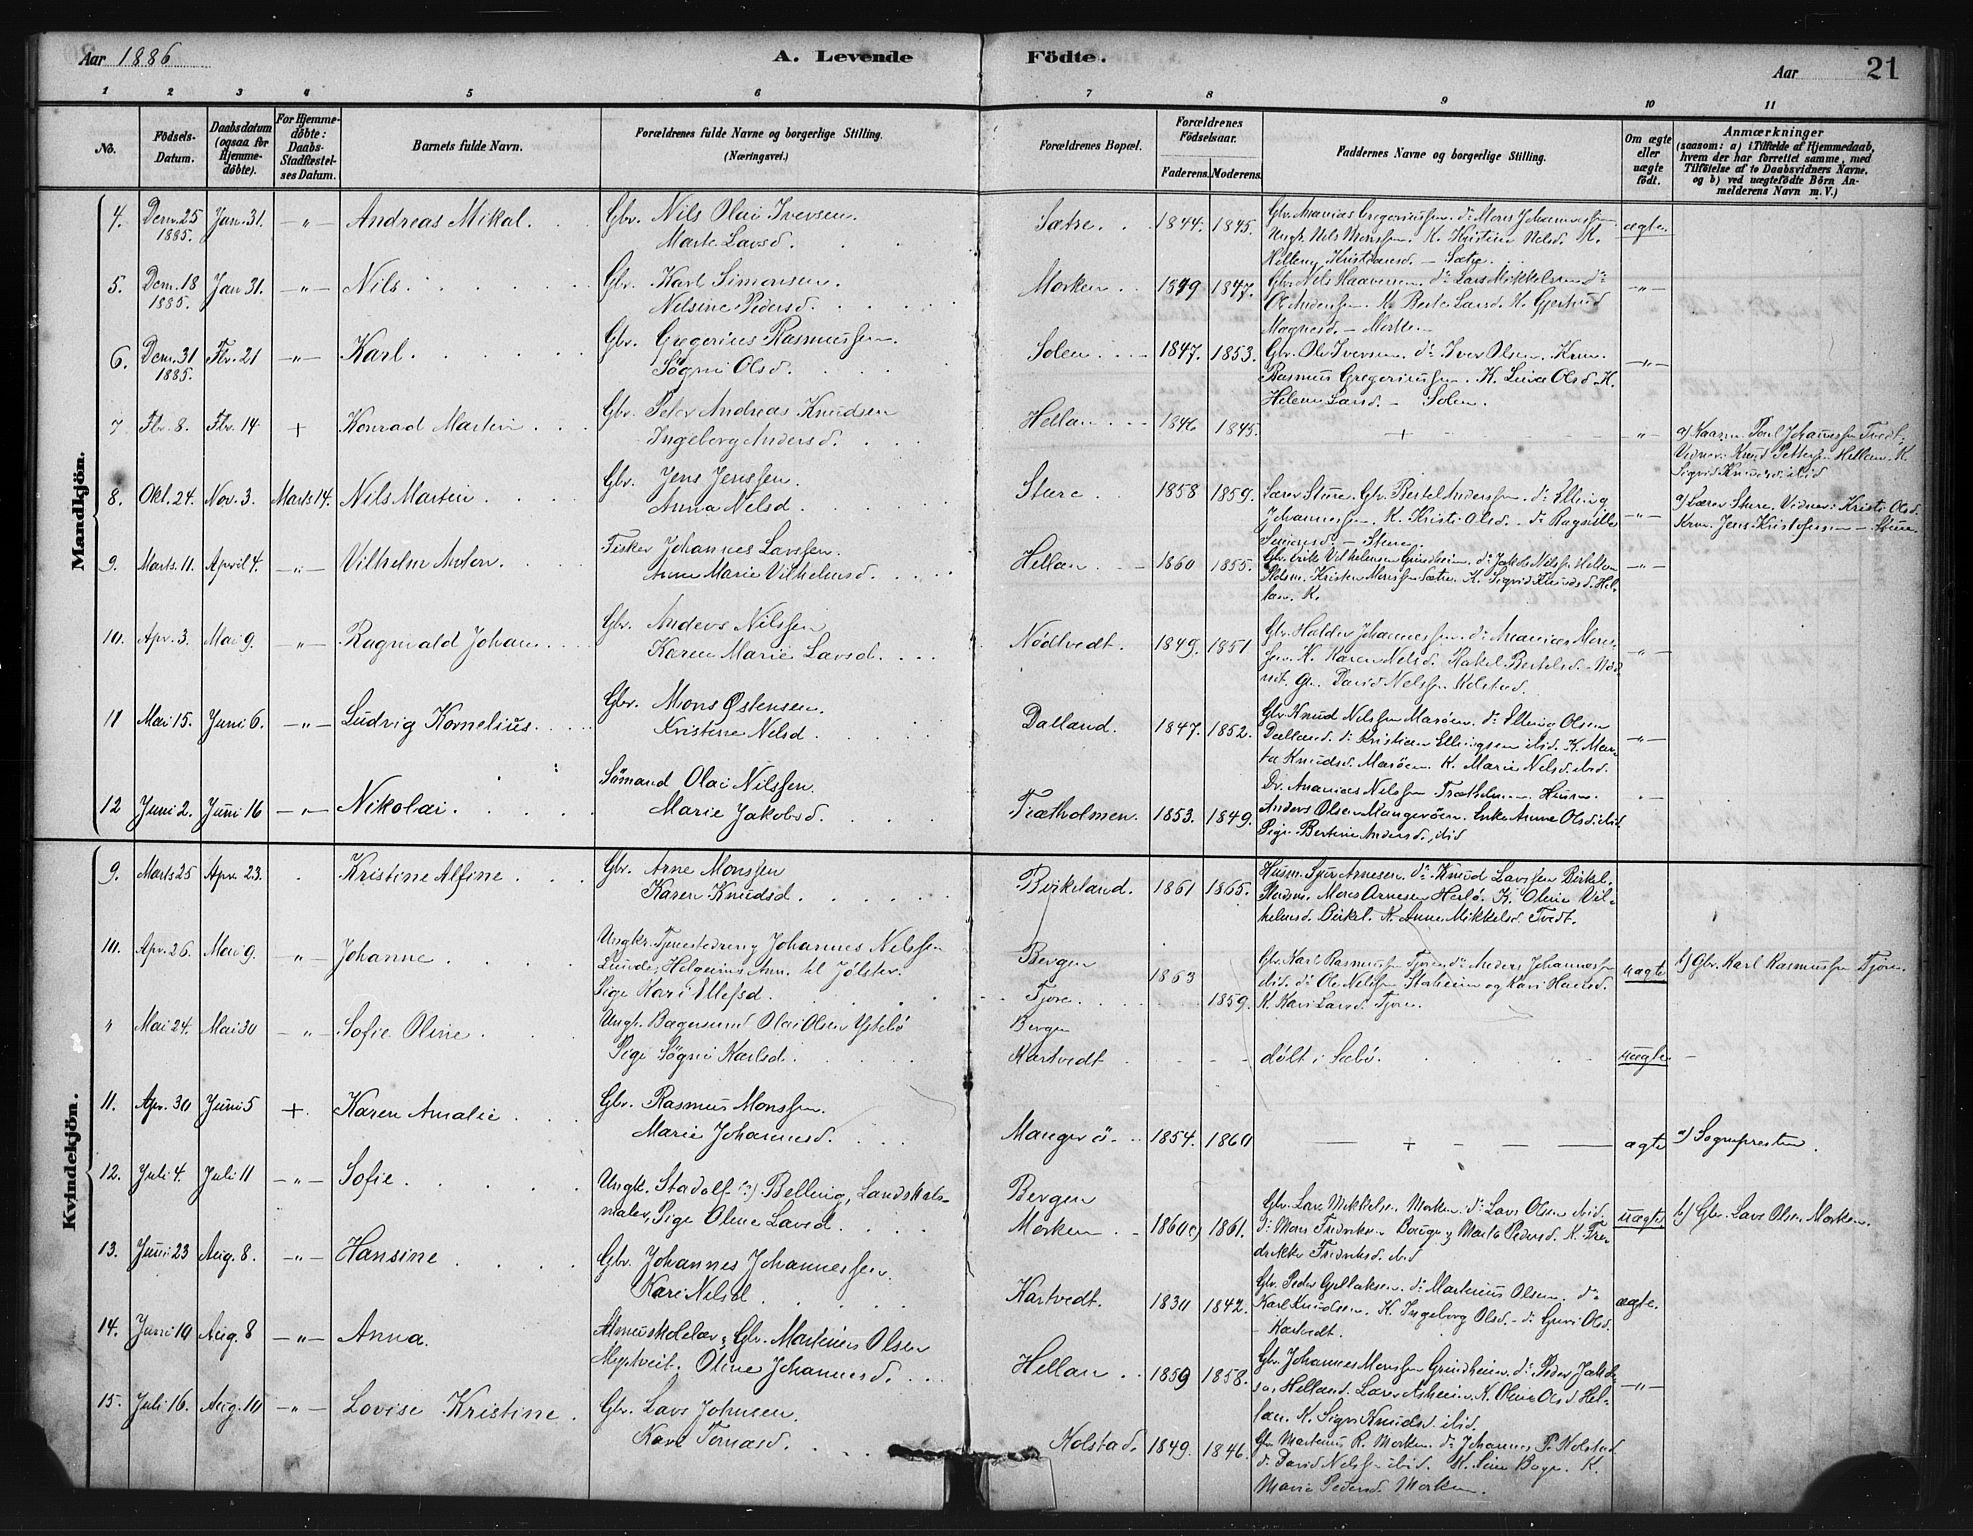 Aar 1886 A. Levende Födte. Aar 21
1 2 3 4 5 6 7 8 9 10 11
No. Födsels-Datum. Daabsdatum (ogsaa for Hjemmedöbte). For Hjemmedöbte: Daabs-Stadfæstelses Datum. Barnets fulde Navn. Forældrenes fulde Navne og borgerlige Stilling. (Næringsvei.) Forældrenes Bopæl. Forældrenes Födselsaar. Faderens. Moderens. Faddernes Navne og borgerlige Stilling. Om ægte eller uægte födt. Anmærkninger (saasom: a) i Tilfælde af Hjemmedaab, hvem der har forrettet samme, med Tilföielse af to Daabsvidners Navne, og b) ved uægtefödte Börn Anmelderens Navn m. V.)
Mandkjön.
4. Decm. 25 1885. Jan. 31. -„- Andreas Mikal. Gbr. Nils Olai Iversen. Marte Larsd. Sætre. 1844. 1845. Gbr. Ananias Gregoriussen. do Mons Johannessen. Ungk. Nils Monssen. K. Kristine Nilsd. K. Helleny Kristiansd. - Sætre. ægte.
5. Decm. 18 1885. Jan 31. -„- Nils. Gbr. Karl Simonsen. Nilsine Pedersd. Morken. 1849 1847. Gbr. Nils Haaversen. do Lars Mikkelsen do Ol. Andersen. K. Berte Larsd. K. Gjertrud Magnesd. - -„-
6. Decm. 31 1885. Fbr. 21 -„- Karl. Gbr. Gregorius Rasmussen. Sögni Olsd. Solem. 1847. 1853. Gbr. Ole Iversen. do Iver Olsen. Rasmus Gregoriussen. K. Olsd. K. Helene Larsd. - Solem. -„-
7 Fbr. 8. Fbr. 14 + Konrad Martin Gbr. Peter Andreas Knudsen Ingeborg Andersd. Hellan. 1846 1845. + „ a) Poul Johannessen Tvedt. Vidner: Knud Pettersen Hellan. K Sigrid Knudsd. ibid
8. Okt. 24. Nov. 3. Marts 14. Nils Martin Gbr. Jens Jenssen. Anna Nelsd. Sture. 1858 1859. Lærer Sture. Gbr. Bertel Anderssen. do Elling Johannessen. K. Kristi Olsd. do Sture. -„- a) Lærer Sture. Vidner: Kristi Olsd. Jens Kristofersen - Sture
9. Marts. 11. April 4. -„- Vilhelm Anton. Fisker Johannes Larssen. Anne Marie Vilhelmsd. Hellan. 1860 1855. Gbr. Erik Vilhelmsen Grindheim. do Jakob Nilssen Hellan. Kristen Monssen Sætre. K. Sigrid Knudsd. Hellan. K. -„-
10. Apr. 3. Mai 9. -„- Ragnvald Johan. Gbr. Anders Nilssen Karen Marie Larsd. Nödtvedt. 1849. 1851 Gbr. Haldor Johannessen. do Ananias Monssen. K. Karen Nelsd. Rakel Bertelsd. David Nelssen Holstad. -„-
11 Mai 15. Juni 6. -„- Ludvig Kornelius. Gbr. Mons Østensen. Kristine Nelsd. Dalland. 1847. 1852. Gbr. Knud Nelssen Maröen. do Elling Olsen Dalland. do Kristian Ellingsen ibid. K. Marta Knudsd. Maröen. K. Marie Nelsd. ibid. -„-
12 Juni 2. Juni 16 -„- Nikolai. Sömand Olai Nilssen. Marie Jakobsd. Trætholmen. 1853. 1849. Ananias Nelssen Trætholmen. Husm. Anders Olsen Mangeröen. Enke Anne Olsd. ibid. Pige Bertine Andersd. ibid
Kvindekjön.
9. Marts 25 Apr. 23. Kristine Alfine. Gbr. Arne Monssen Karen Knudsd. Birkeland. 1861 1865. Husm. Sjur Arnesen. do Knud Larssen Birkel. Mons Arnesen Herlö. K. Oline Vilhelmsd. Birkel. K. Anne Mikkelsd. Tvedt.
10. Apr. 26. Mai 9. -„- Johanne. Ungkr. Tjenestedreng Johannes Nelssen Lunde, Ann. til Jölster. Pige Kari Ellefsd. Bergen Fjore. 1863 1859. Gbr. Karl Rasmussen Fjore. do Anders Johannessen ibid. do Ole Nelssen og Kari K. Kari Larsd. Fjore. uægte b) Gbr. Karl Rasmussen Fjore.
„ Mai 24. Mai 30 -„- Sofie Oline. Ungk. Bagersvend Olai Olsen Ystebö Pige Sögni Karlsd. Bergen Kartvedt - - döbt i Sæbö. uægte
11. Apr. 30 Juni 5 + Karen Amalie Gbr. Rasmus Monssen. Marie Johannesd. Mangerö. 1854. 1860 + ægte a) Sognepresten.
12. Juli 4. Juli 11 -„- Sofie. Ungk. Stadolf (?) Belling, Landskabsmaler, Pige Oline Larsd. Bergen Morken 1860(?) 1861. Gbr. Lars Mikkelsen. Morken. do Lars Olsen ibid. do Mons Fredriksen Bauge, Marta Pedersd. K. Fredrikke Fredriksd. ibid uægte b) Gbr. Lars Olsen Morken.
13. Juni 23 Aug. 8. -„- Hansine Gbr. Johannes Johannessen. Kari Nelsd. Kartvedt. 1830 1842. Gbr. Peder do Martinius Olsen. do Karl Knudsen. K. Ingeborg Olsd. do Guri Olsd. - Kartvedt. ægte.
14. Juni 19 Aug. 8 -„- Anna. Almueskolelær. & Gbr. Martinius Olsen Myrtveit. Oline Johannesd. Hellan. 1859 1858. Gbr. Johannes Monssen Grindheim. do Peder Jakobsen Helland. Lars K. Oline Olsd. Hellan. K. Sigri Knudsd. ibid. -„-
15. Juli 16. Aug. 10 -„- Lovise Kristine. Gbr. Lars Johnsen. Kari Tomasd. Holstad. 1849. 1846. Gbr. Martinius R. Morken. do Johannes P. Holstad do David Nelssen ibid. K. K. Marie Pedersd. Morken.